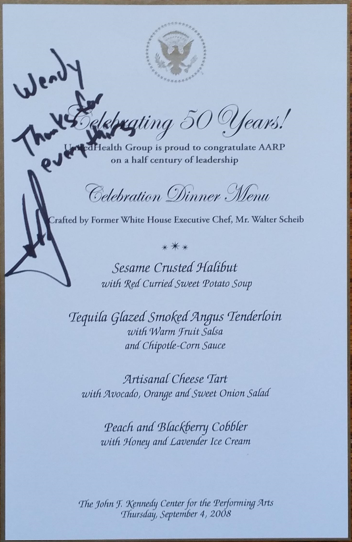 Wendy
Thanks for
everything
Celebrating 50 Years!
UnitedHealth Group is proud to congratulate AARP
on a half century of leadership
Celebration Dinner Menu
Crafted by Former White House Executive Chef, Mr. Walter Scheib
Sesame Crusted Halibut
with Red Curried Sweet Potato Soup
Tequila Glazed Smoked Angus Tenderloin
with Warm Fruit Salsa
and Chipotle-Corn Sauce
Artisanal Cheese Tart
with Avocado, Orange and Sweet Onion Salad
Peach and Blackberry Cobbler
with Honey and Lavender Ice Cream
The John F. Kennedy Center for the Performing Arts
Thursday, September 4, 2008